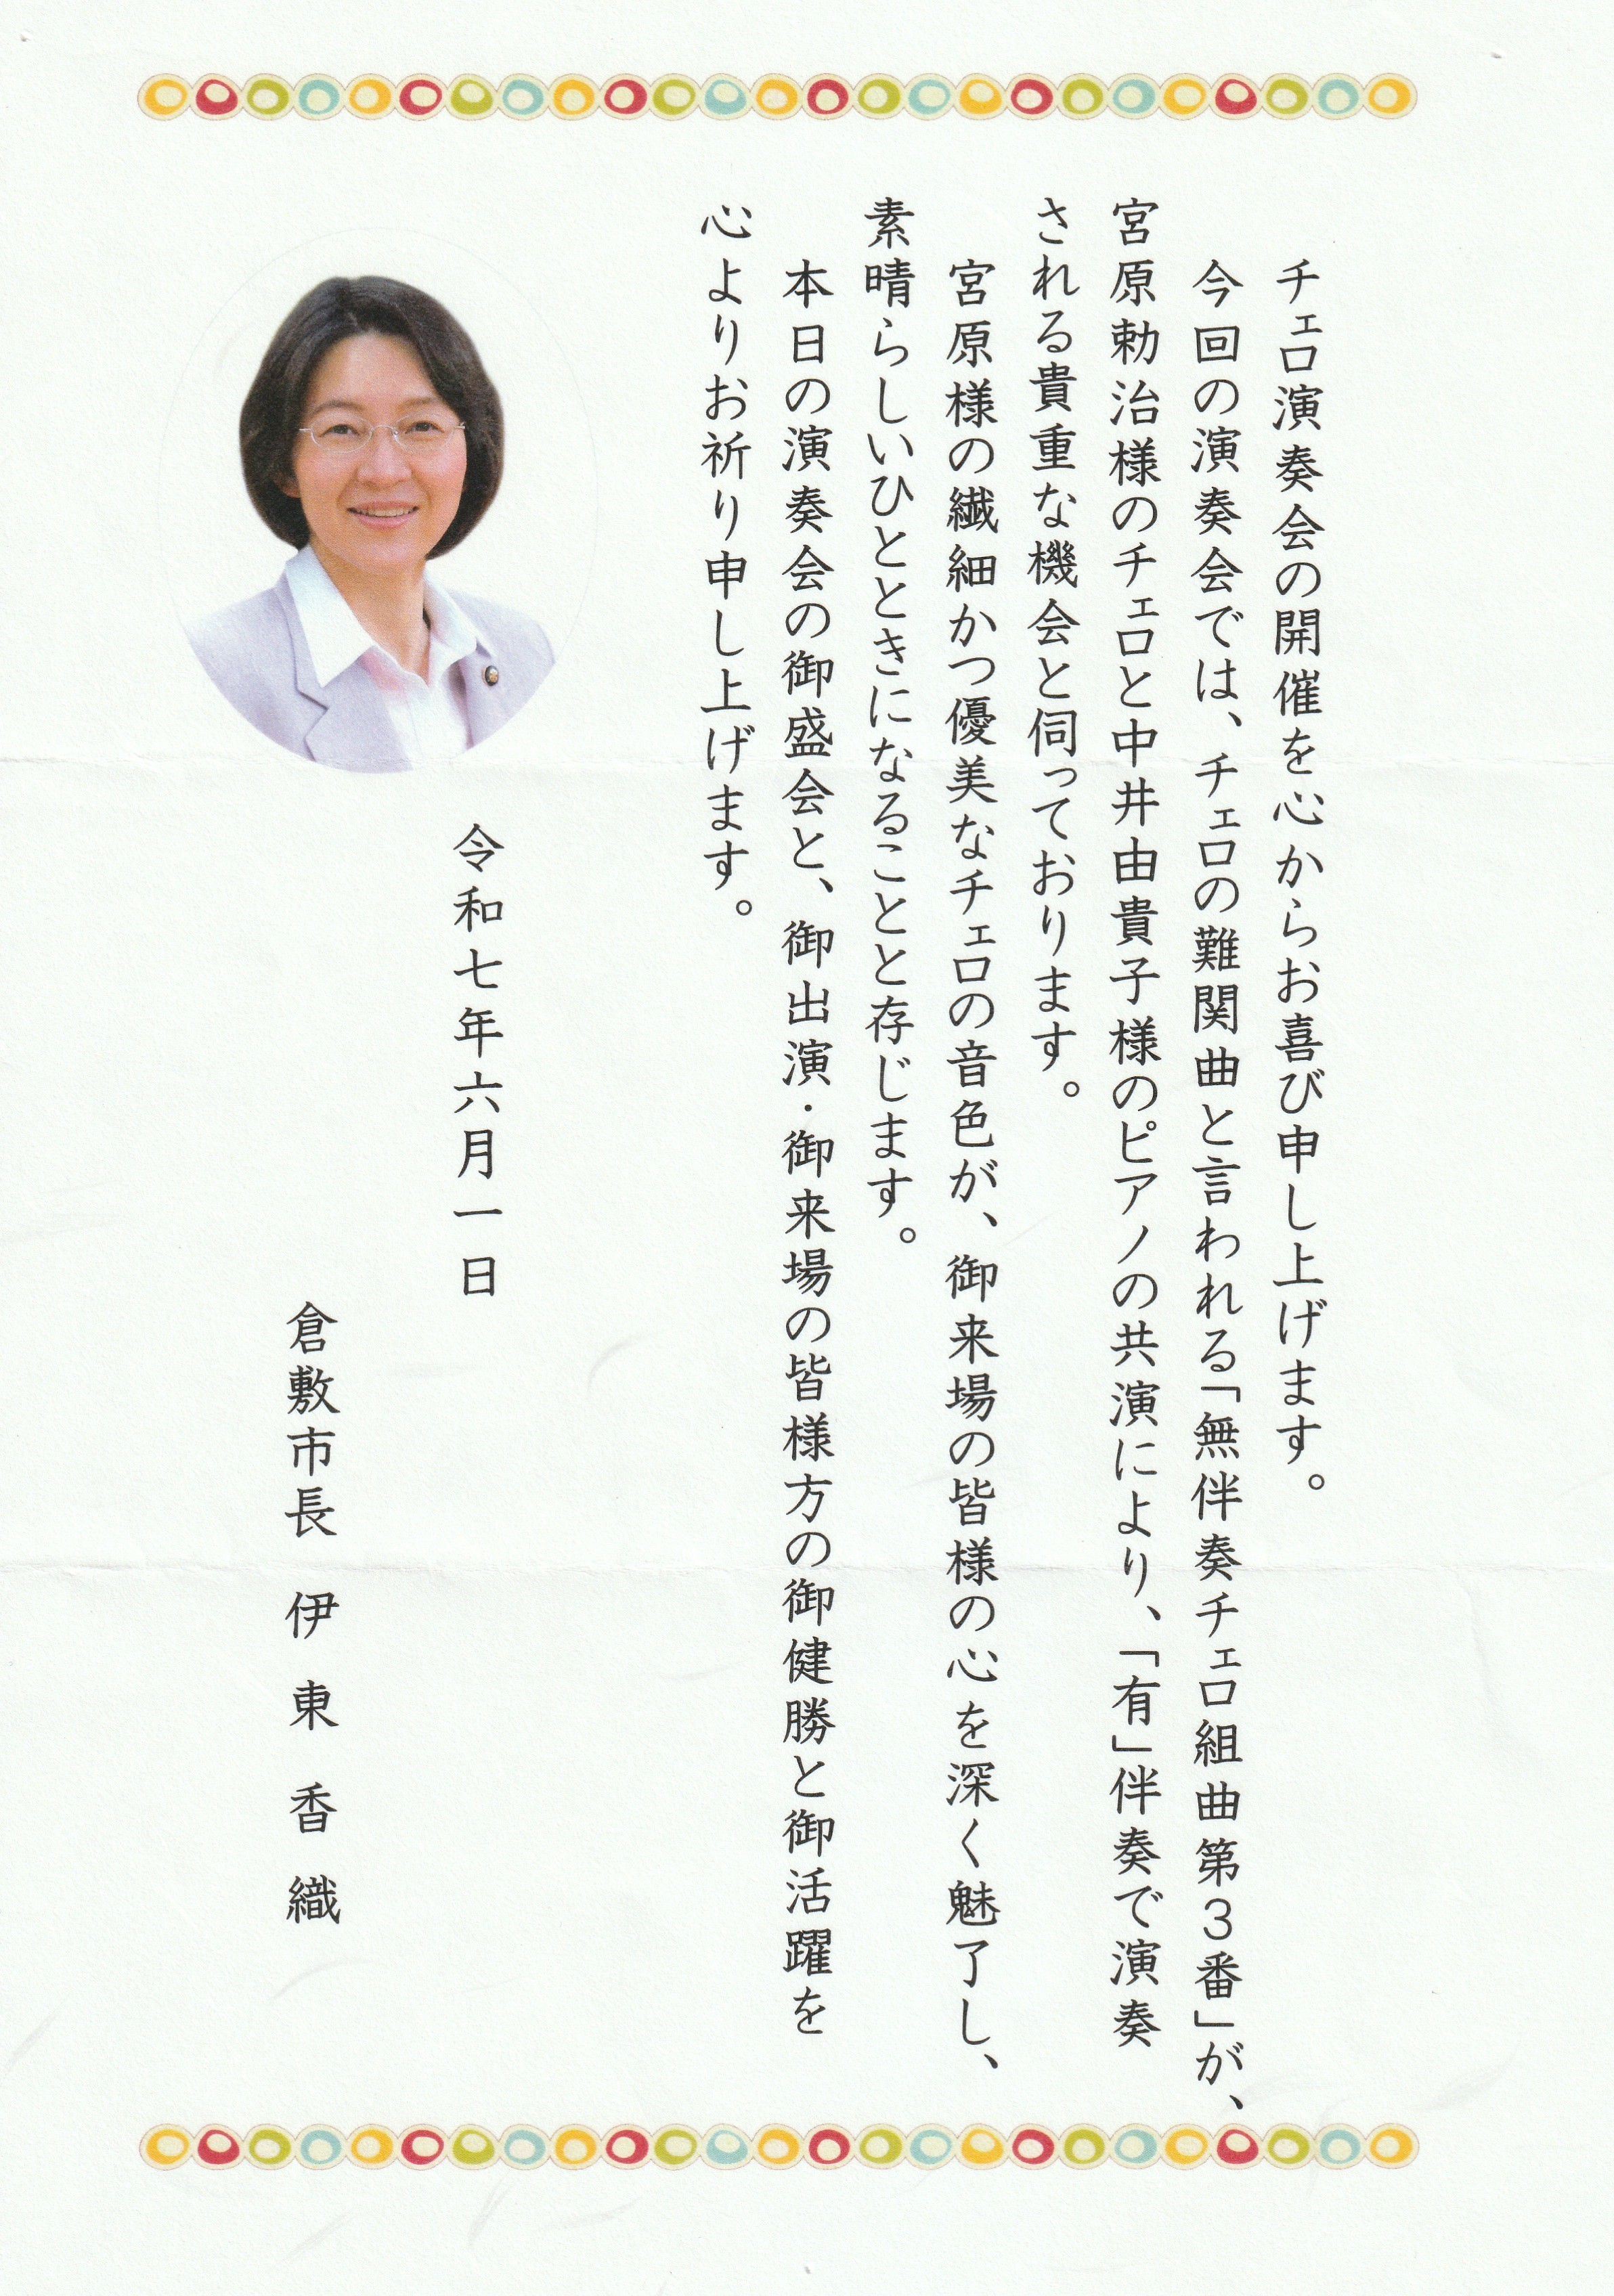 チェロ演奏会の開催を心からお喜び申し上げます。
今回の演奏会では、チェロの難関曲と言われる「無伴奏チェロ組曲第３番」が、
宮原勅治様のチェロと中井由貴子様のピアノの共演により、「有」伴奏で演奏
される貴重な機会と伺っております。
宮原様の繊細かつ優美なチェロの音色が、御来場の皆様の心を深く魅了し、
素晴らしいひとときになることと存じます。
本日の演奏会の御盛会と、御出演・御来場の皆様方の御健勝と御活躍を
心よりお祈り申し上げます。
令和七年六月一日
倉敷市長 伊東香織